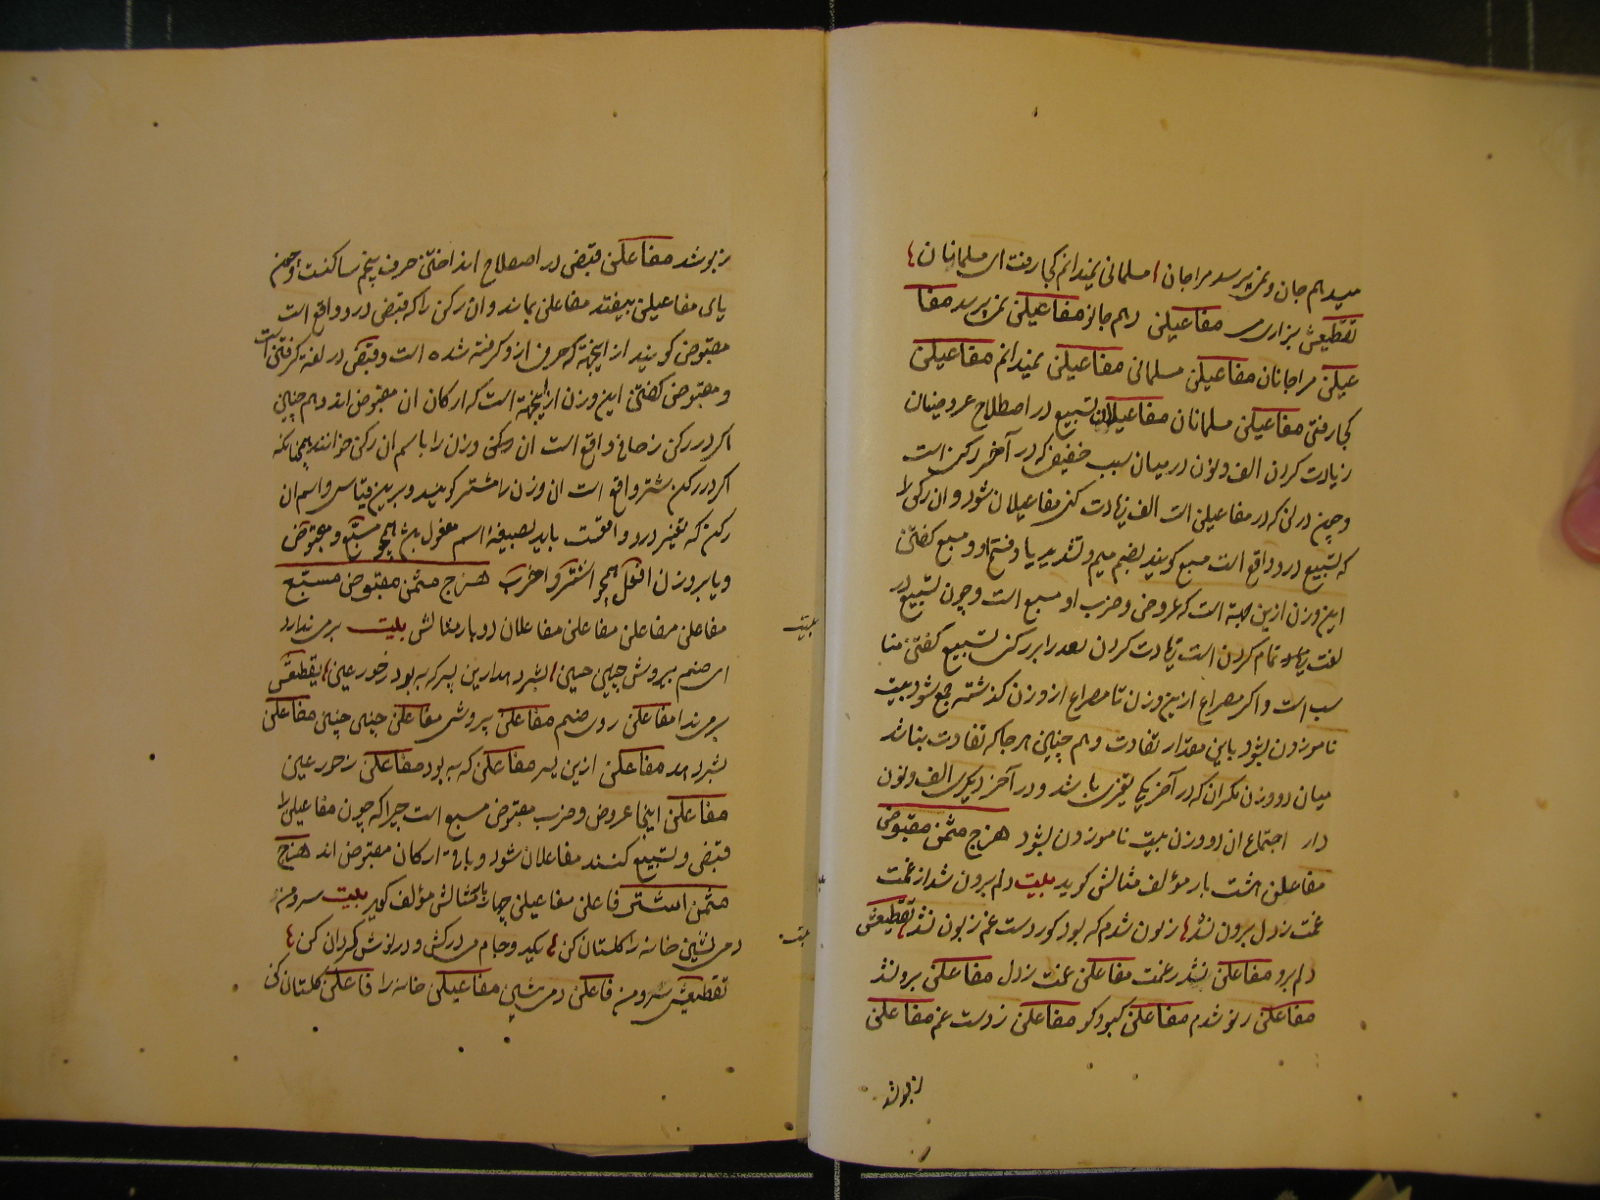 میدهم جان و نمی پرسد مرا جان مسلمانی نمیدانم کجا رفت ای مسلمانان
تقطیعش بزاری می مفاعیلن دهم جانو مفاعیلن نمی پرسد مفا
عیلن مرا جانان مفاعیلن مسلمانی مفاعیلن نمیدانم مفاعیلن
کجا رفتی مفاعیلن مسلمانان مفاعیلان تسبیغ در اصطلاح عروضیان
زیادت کردن الف و نون در میان سبب خفیف که در آخر رکن است
و چون در لن که در مفاعیلن است الف زیادت کنی مفاعیلان شود و ان رکن را
که تسبیغ درو واقع است مسبع کویند بضم میم و تشدید یا و فتح او و مسبع کفتن
این وزن ازین جهة است که عروض و ضرب او مسبع است و چون تسبیغ در
لغت تمام کردن است زیادت کردن بعد را بر رکن تسبیغ کفتن منا
سب است و اکر مصراع ازین وزن تا مصراع از وزن کذشته جمع شود بیت
ناموزون نشود باین مقدار تفاوت و هم چنین هر جا که تفاوت نباشد
میان دو وزن مکر ان که در آخر یکی باشد و در آخر دیکری الف و نون
دار اجتماع ان دو وزن بیت ناموزون نشود هزج مثمن مقبوض
مفاعلن هشت بار مؤلف مثالش کوید بیت دلم برون شد از غمت
غمت ز دل برون نشد زبون شدم که بود کو ز دست غم زبون نشد تقطیعش
دلم برو مفاعلن نشد زغمت مفاعلن غمت ز دل مفاعلن برو نشد
مفاعلن زبو شدم مفاعلن کبود کو مفاعلن ز دست غم مفاعلن
زبو نشد
زبو شد مفاعلن قبض در اصطلاح انداختن حرف پنجم ساکنست و چون
یای مفاعیلن بیفتد مفاعلن بماند و ان رکن را که قبض درو واقع است
مقبوض کویند از اینجهة که حرف ازو کرفته شده است و قبض در لغة کرفتن است
و مقبوض کفتن این وزن از اینجهة است که ارکان ان مقبوض اند و هم چنین
اکر در رکن زحافی واقع است ان رکن وزن را باسم ان رکن خوانند همچنانکه
اکر در رکن شتر واقع است ان وزن را مشتر کویند و برین قیاس و اسم ان
رکن که تغیر درو واقعست باید بصیغهٔ اسم مفعول باشد همچو مسبع و مقبوض
و یا بر وزن افعل همچو اشتر و اخرب هزج مثمن مقبوض مسبع
مفاعلن مفاعلن مفاعلن مفاعلان دو بار مثالش بیت پری ندارد
ای صنم بروش چنین حسین بشر بدین پسر که به بود ز حور عین تقطیعش
پری ندا مفاعلن ر دی صنم مفاعلن بروش مفاعلن چنین چنین مفاعلن
بشر مفاعلن ازین پسر مفاعلن که به بود مفاعلن ز حور عین
مفاعلن اینجا عروض و ضرب مقبوض مسبع است چرا که چون مفاعیلن را
قبض و تسبیغ کنند مفاعلان شود و باقی ارکان مقبوض اند هزج
مثمن اشتر فاعلن مفاعیلن چهار بار مثالش مؤلف کوید بیت سرو من
دمی بنشین خانه را کلستان کن یکید و جام می درکش و در نوش کردان کن
تقطیعش سرو من فاعلن دمی بنشین مفاعیلن خانه را فاعلن کلستان کن
بیت
بیت